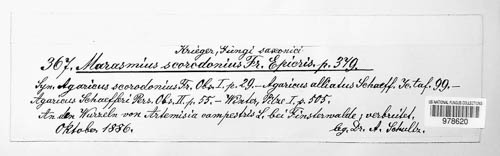 Krieger, Fungi saxonici
367. Marasmius scorodonius Fr. Epicris. p. 379.
Syn. Agaricus scorodonius Fr. Obs. I. p. 29. – Agaricus alliatus Schaeff. Ic. taf. 99. –
Agaricus Schaefferi Pers. Obs. II. p. 55. – Winter, Pilze I. p. 505.
An den Wurzeln von Artemisia campestris L. bei Finsterwalde, verbreitet.
Oktober 1886. leg. Dr. A. Schultz.
US NATIONAL FUNGUS COLLECTIONS
978620